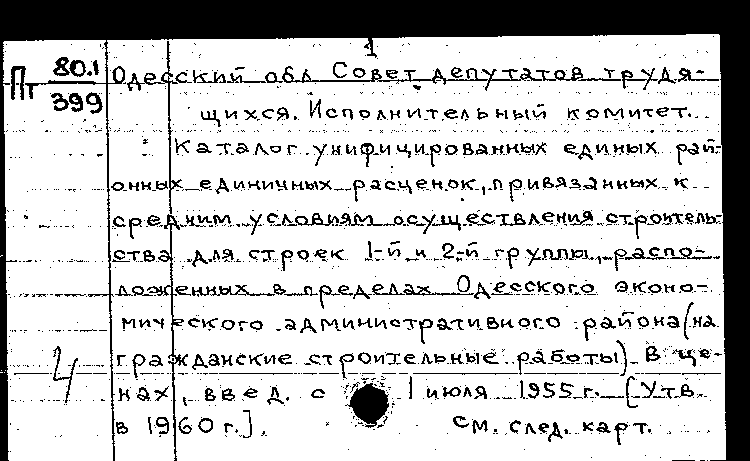 1
Пт 80.1
399
Одесский обл Совет депутатов трудя-
щихся. Исполнительный комитет.
Каталог унифицированных единых рай-
онных единичных расценок, привязанных к
средним условиям осуществления строитель-
ства для строек 1-й и 2-й группы, распо-
ложенных в пределах Одесского эконо-
мического административного района (на
гражданские строительные работы). В це-
нах, введ. с 1 июля 1955 г. [Утв.
в 1960 г.].
см. след. карт.